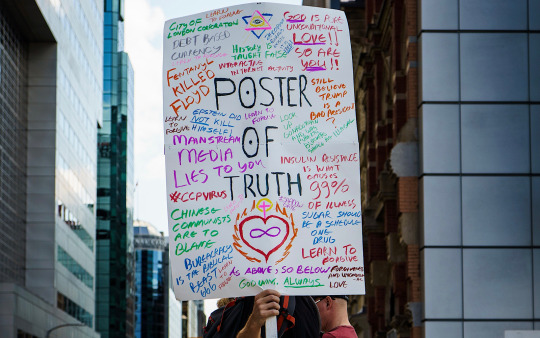 CITY OF
LONDON CORPORATION
DEBT BASED
CURRENCY
LEARN TO
FORGIVE
GOD IS PURE
UNCONDITIONAL
LOVE!!
SO ARE
YOU!!
HISTORY
TAUGHT FALSE
INTERNET ACTIVITY
FENTANYL
KILLED
FLOYD
POSTER
OF
TRUTH
STILL
BELIEVE
TRUMP
IS A
BAD PERSON?
LEARN
TO
FORGIVE
EPSTEIN DID
NOT KILL
HIMSELF!
LEARN TO
FORGIVE
LOOK
UP
MAINSTREAM
MEDIA
LIES TO YOU
INSULIN RESISTANCE
IS WHAT
CAUSES
99%
OF ILLNESS
#CCPVIRUS
CHINESE
COMMUNISTS
ARE TO
BLAME
SUGAR SHOULD
BE A SCHEDULE
ONE
DRUG
BUREAUCRACY
IS THE BIBLICAL
BEAST
LEARN TO
FORGIVE
AS ABOVE, SO BELOW
GOD WINS. ALWAYS
FORGIVENESS
AND
LOVE